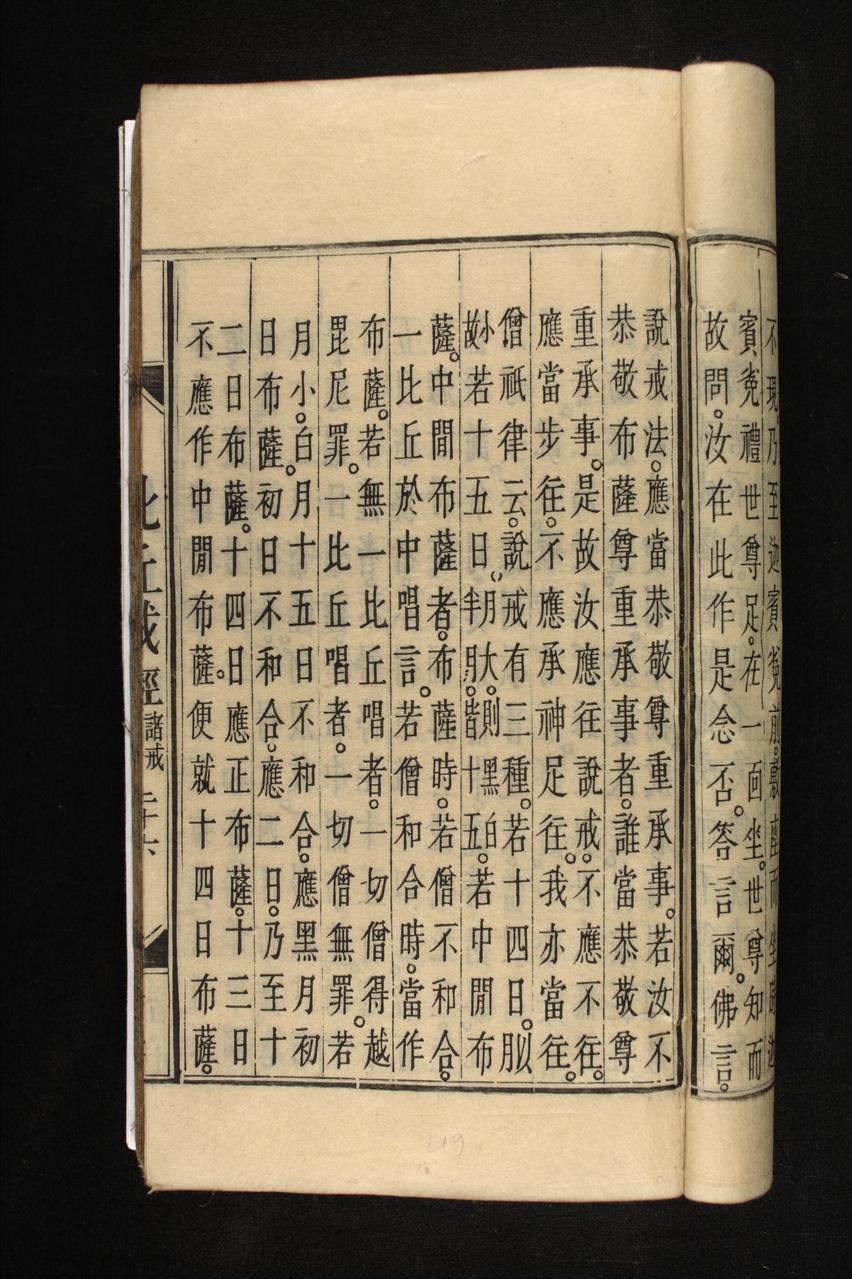 不現乃至迦賓㝹前。敷座而坐時迦
賓㝹禮世尊足。在一面坐。世尊知而
故問。汝在此作是念否。答言爾。佛言。
說戒法。應當恭敬尊重承事。若汝不
恭敬布薩尊重承事者。誰當恭敬尊
重承事。是故汝應往說戒。不應不往。
應當步往。不應承神足往。我亦當往。
僧祇律云。說戒有三種。若十四日。以月
小故若十五日月大。則黑白半月。皆十五。若中閒布
薩。中閒布薩者。布薩時。若僧不和合。
一比丘於中唱言。若僧和合時。當作
布薩。若無一比丘唱者。一切僧得越
毘尼罪。一比丘唱者。一切僧無罪。若
月小。白月十五日不和合。應黑月初
日布薩。初日不和合。應二日。乃至十
二日布薩。十四日應正布薩。十三日
不應作中閒布薩。便就十四日布薩。
比丘戒經 諸戒 二十六